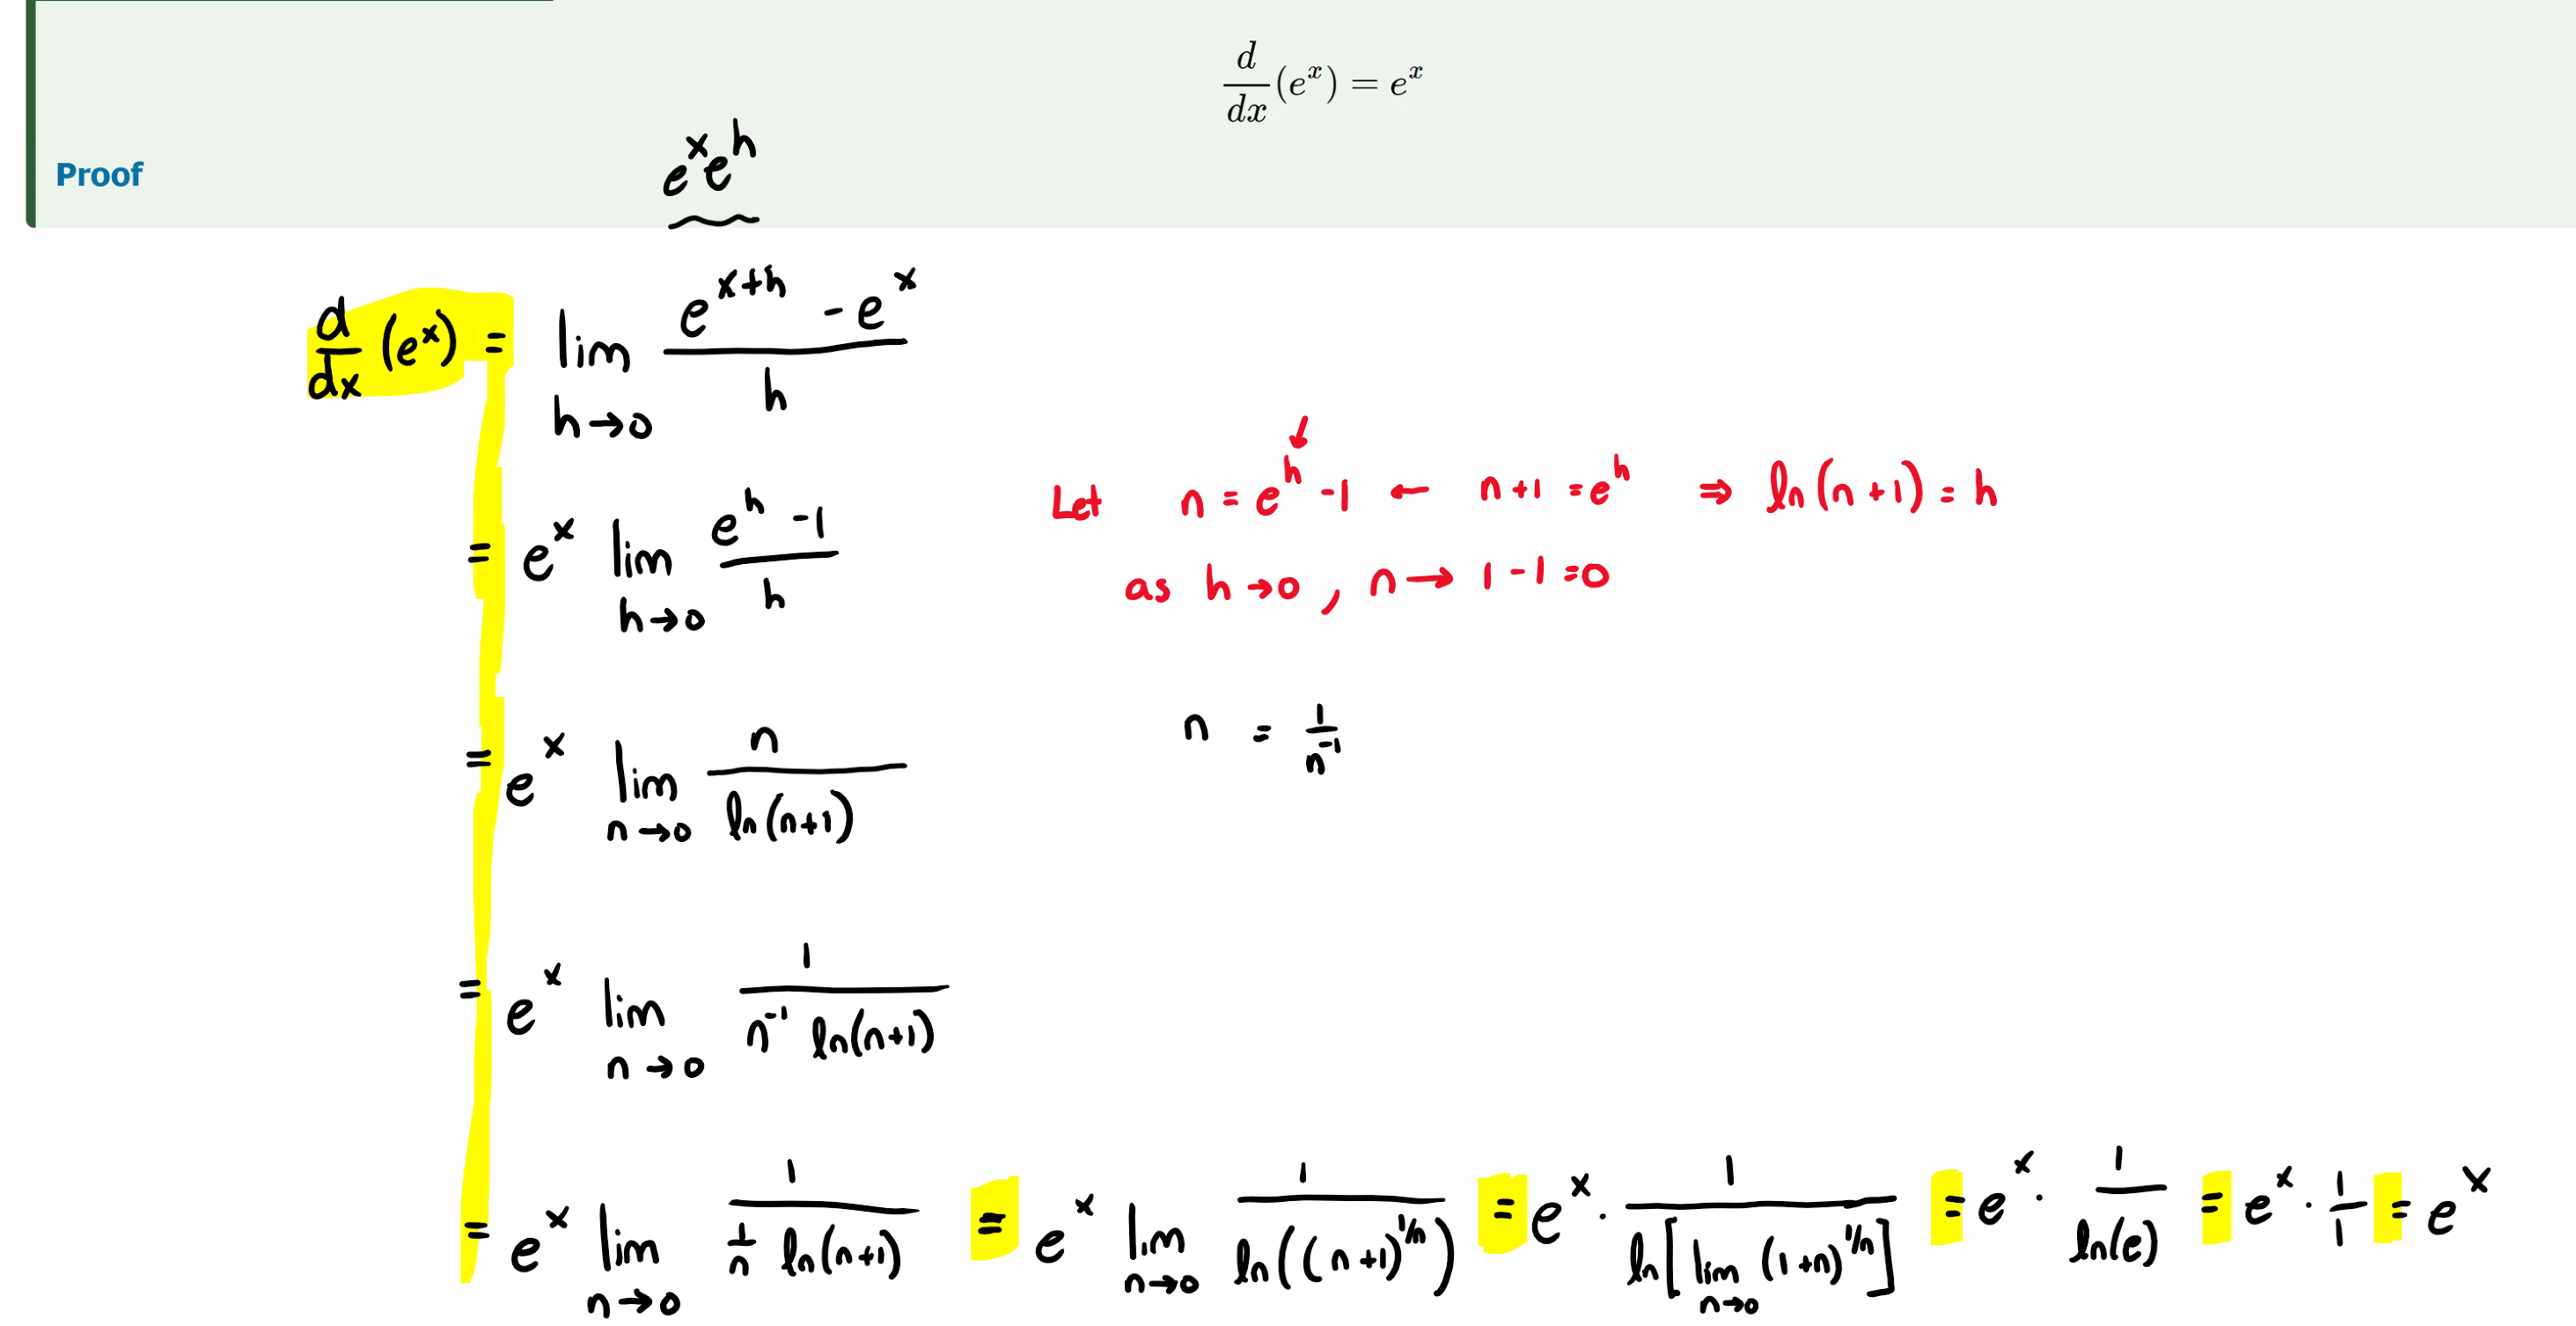 d/dx (e^x) = e^x
Proof
e^x e^h
d/dx (e^x) = lim_{h→0} (e^{x+h} - e^x)/h
= e^x lim_{h→0} (e^h - 1)/h
Let n = e^h - 1 ← n+1 = e^h ⇒ ln(n+1) = h
as h→0, n→ 1-1=0
= e^x lim_{n→0} n/ln(n+1)
n = 1/n^{-1}
= e^x lim_{n→0} 1/(n^{-1} ln(n+1))
= e^x lim_{n→0} 1/(1/n ln(n+1)) = e^x lim_{n→0} 1/ln((n+1)^{1/n}) = e^x · 1/ln[lim_{n→0} (1+n)^{1/n}] = e^x · 1/ln(e) = e^x · 1/1 = e^x